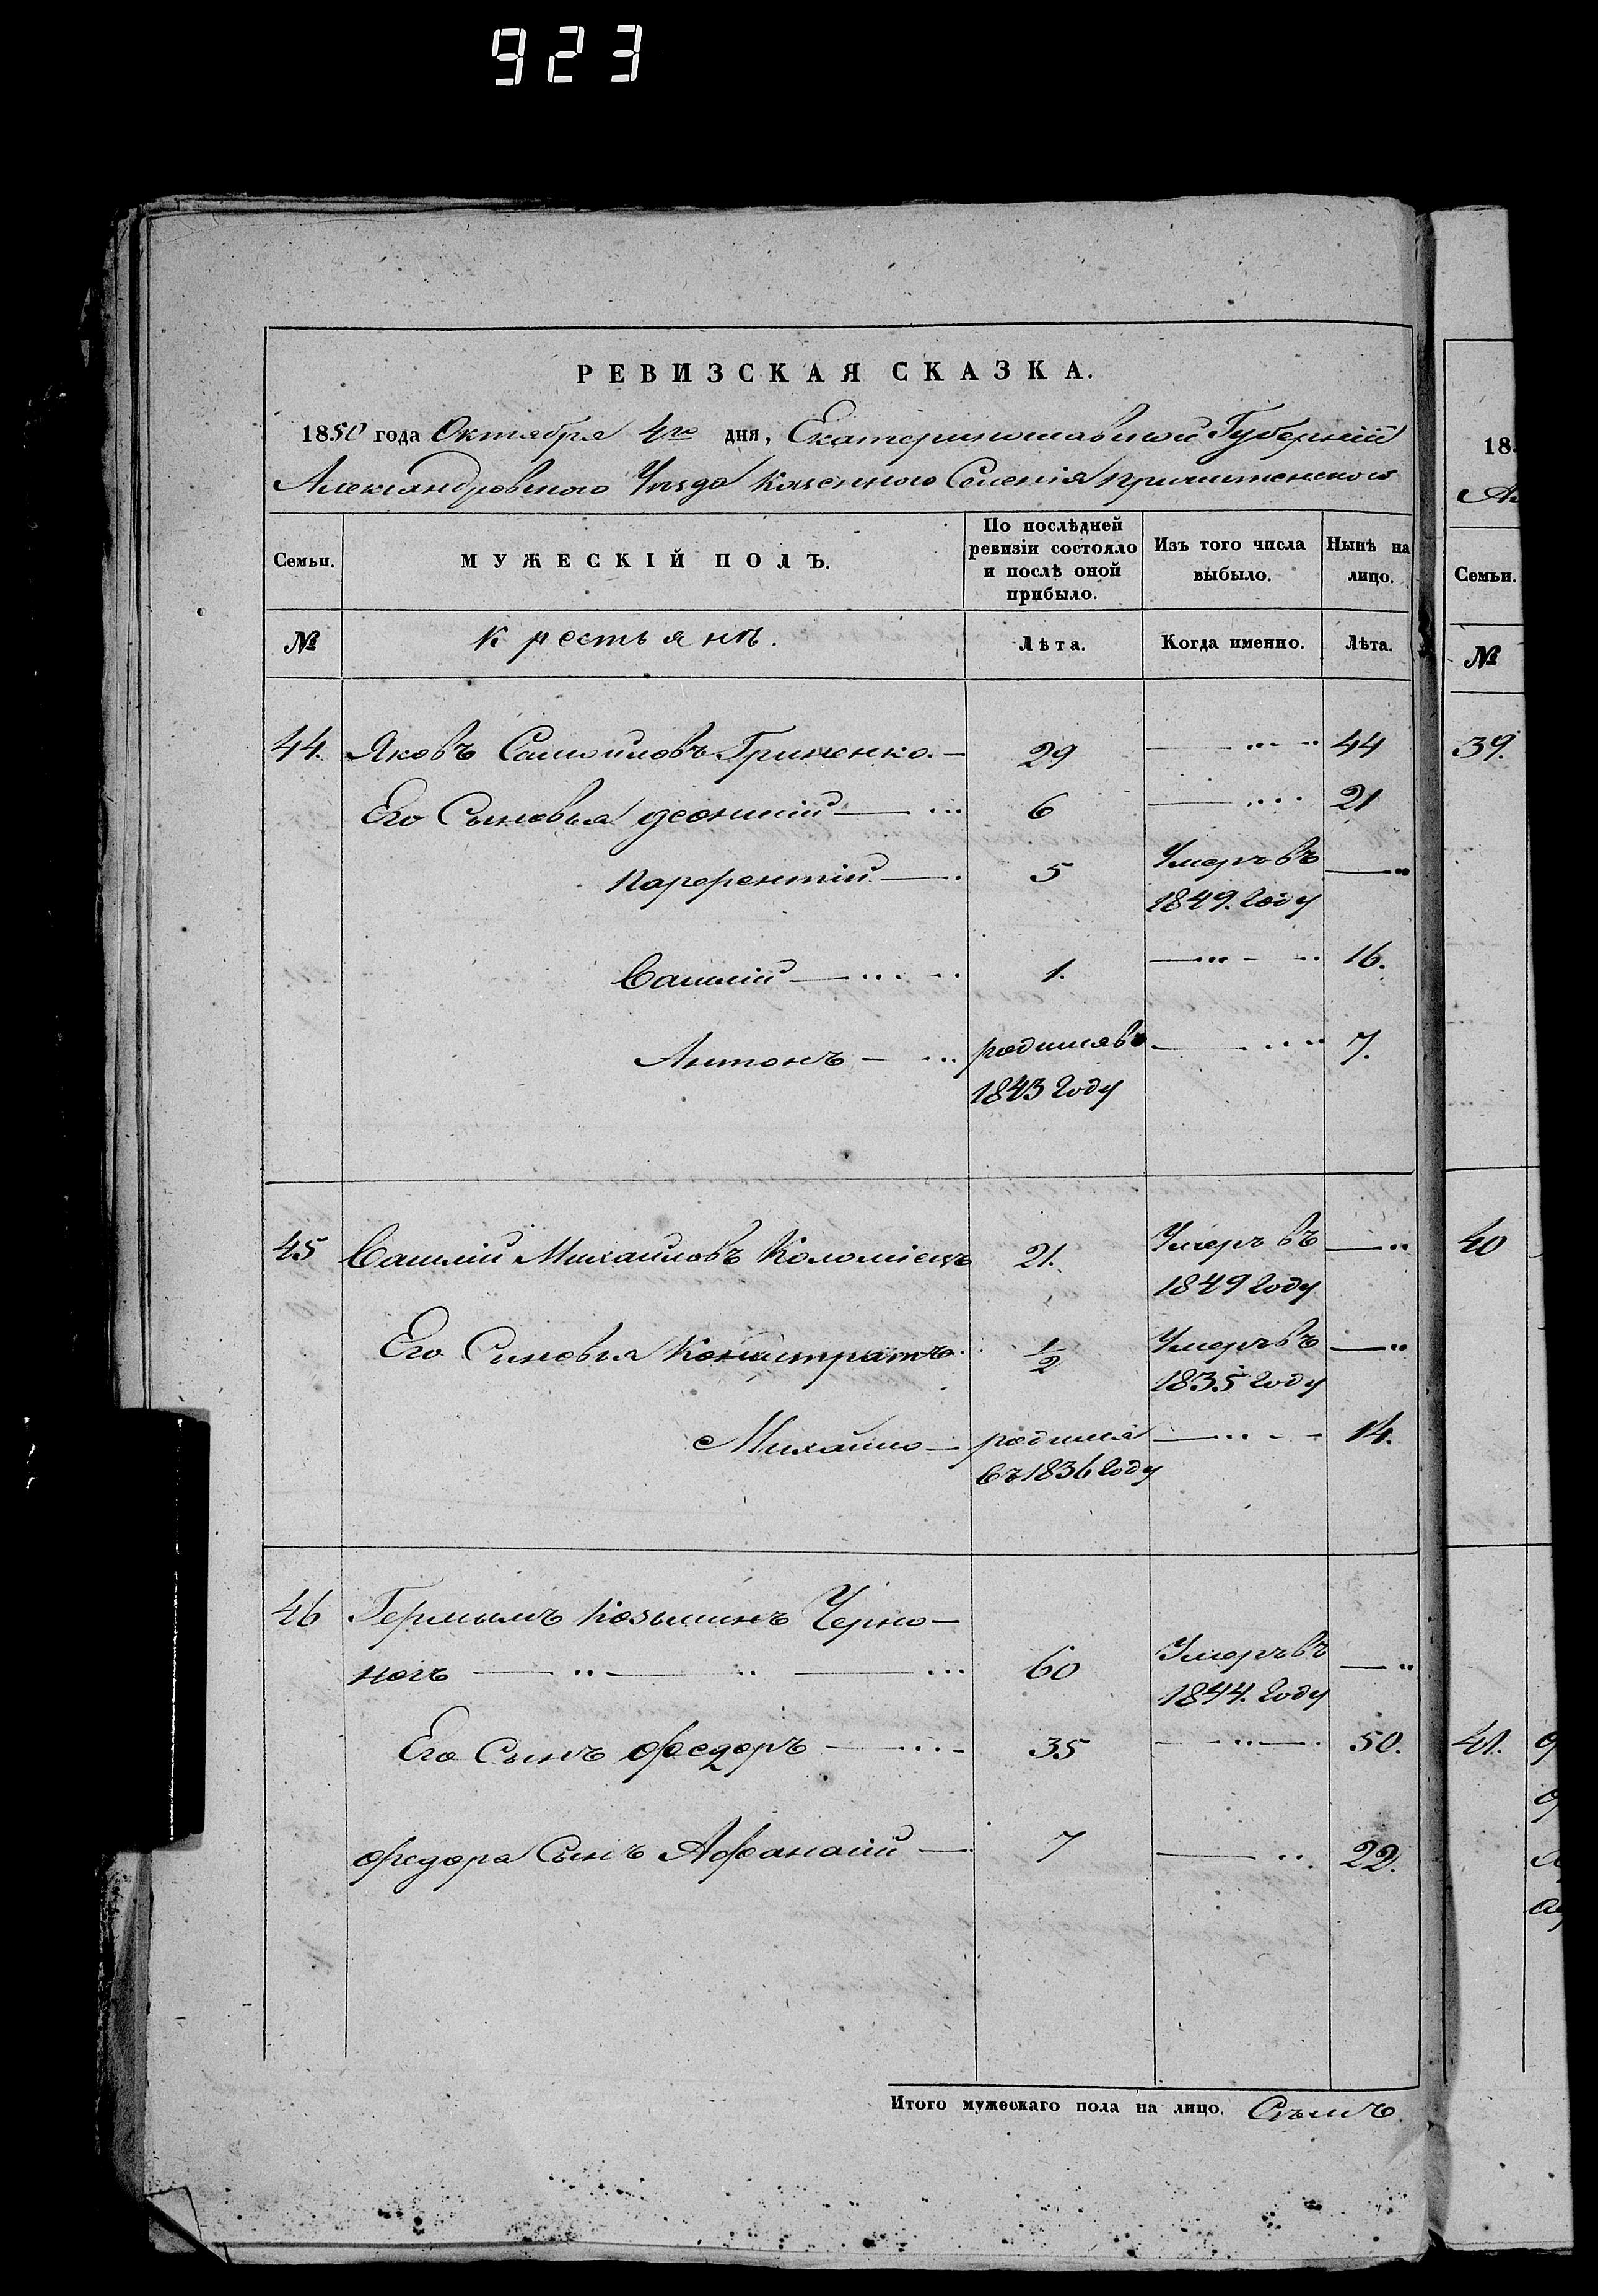 923
РЕВИЗСКАЯ СКАЗКА.
1850 года Октября 4го дня, Екатеринославской Губерніи
Александровского Уезда Казенного Селенія
Семьи.
МУЖЕСКІЙ ПОЛЪ.
По послѣдней ревизіи состояло и послѣ оной прибыло.
Изъ того числа выбыло.
Нынѣ на лицо.
№
крестьянъ.
Лѣта.
Когда именно.
Лѣта.
44. Яковъ Самойловъ Гриценко. 29 44
Его Сыновья 6 21
Парфентій 5 Умеръ въ 1849. году
Василій 1. 16.
Антонъ родился въ 1843 году 7.
45 Василій Михайловъ Коломіецъ 21. Умеръ въ 1849 году
Его Синовья 1/2 Умеръ въ 1835 году
Михайло родился въ 1836 году 14.
46 Козьминъ Черно-
ногъ 60 Умеръ въ 1844. году
Его Сынъ Федоръ 35 50.
Федора Сынъ Афанасій 7 22.
Итого мужескаго пола на лицо. Семь
18
Семьи.
№
39.
40
41.